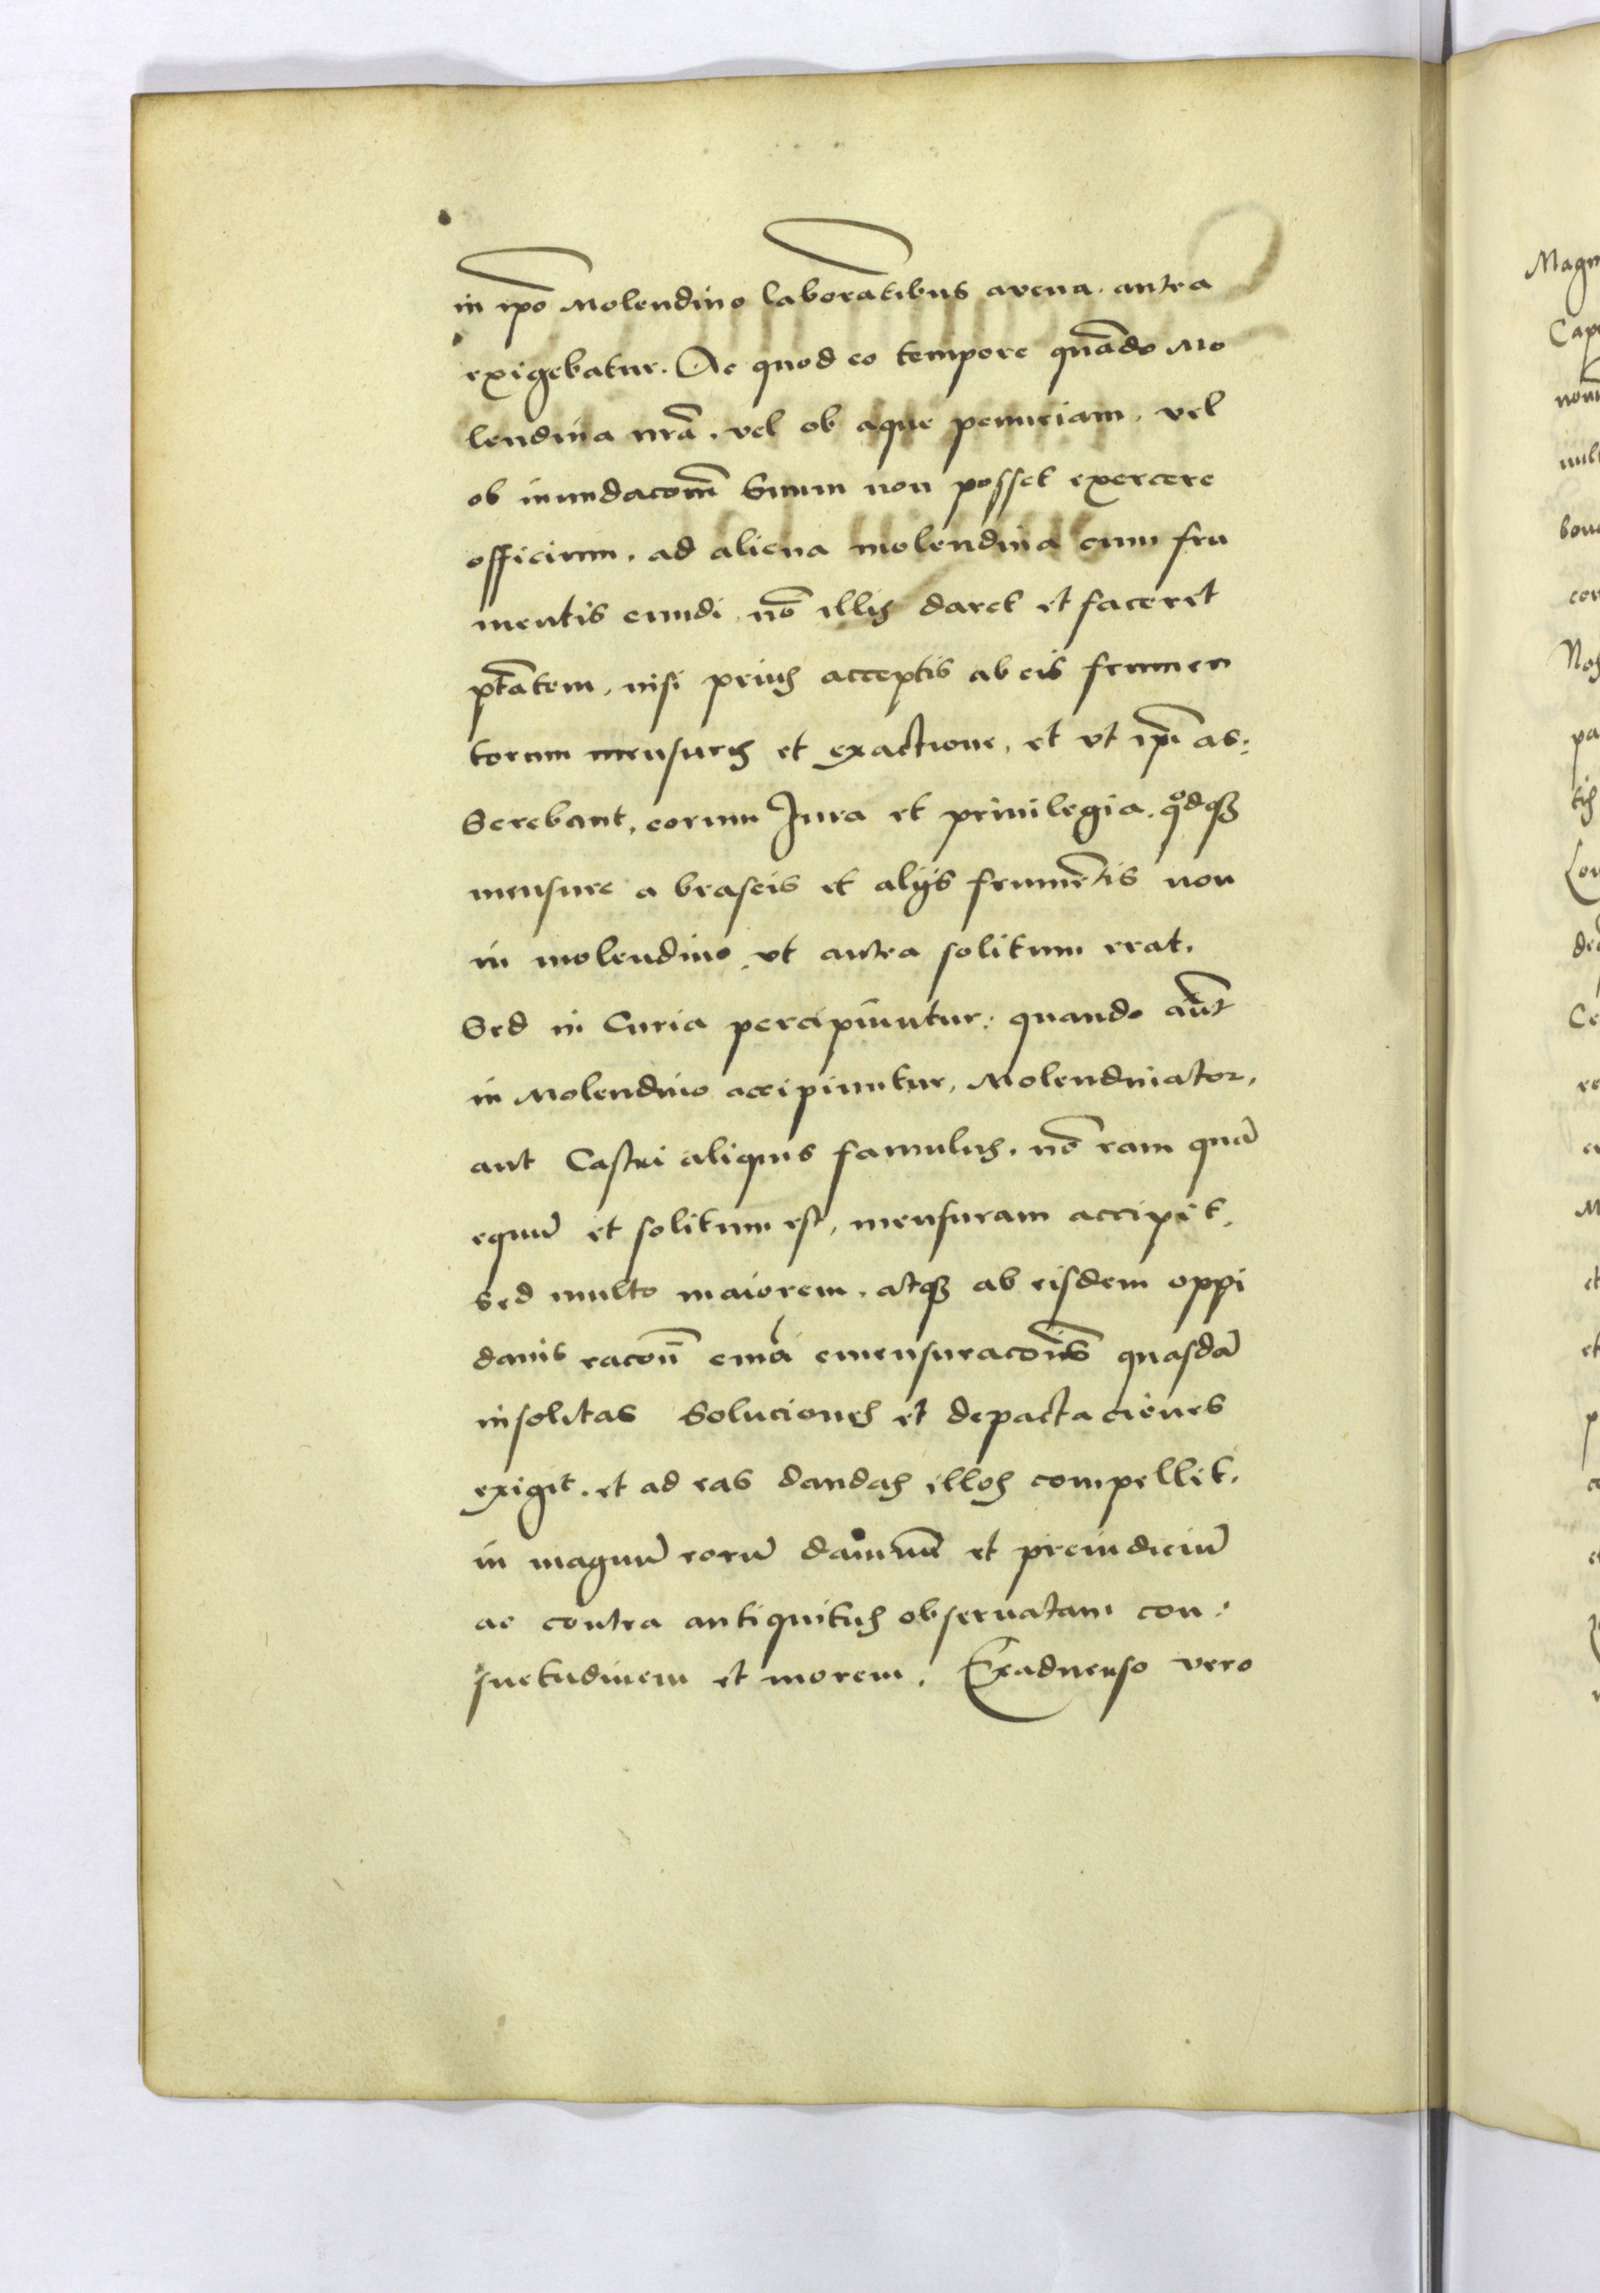 in ipo Molendino laboratibus avena antea
exigebatur. Ac quod eo tempore quãdo Mo
lendina nrã, vel ob aque penuriam, vel
ob inundacoñ Suum non posset exercere
officium, ad aliena molendina cum fru
mentis eundi nõ illis daret et faceret
ptãtem, nisi prius acceptis ab eis frumen
torum mensuris et exactione, et vt ipi as:
Serebant, eorum Jura et priuilegia, qdqȝ
mensure a braseis et alijs frumẽtis non
in molendino, vt antea solitum erat,
Sed in Curia percipiuntur: quando aũt
in Molendino accipiuntur, Molendinator,
aut Castri aliquis famulus, nõ eam quã
equũ et solitum est, mensuram accipit,
Sed multo maiorem, atqȝ ab eisdem oppi
danis racoñ emensuracoñis quasdã
insolitas Soluciones et depactaciones
exigit, et ad eas dandas illos compellit,
in magnũ eorũ damnũ et preiudiciũ
ac contra antiquitus obseruatam con:
suetudinem et morem. Exaduerso vero
Magn
Cap
non
bon
cer
Nos
pa
tis
Con
Ce
et